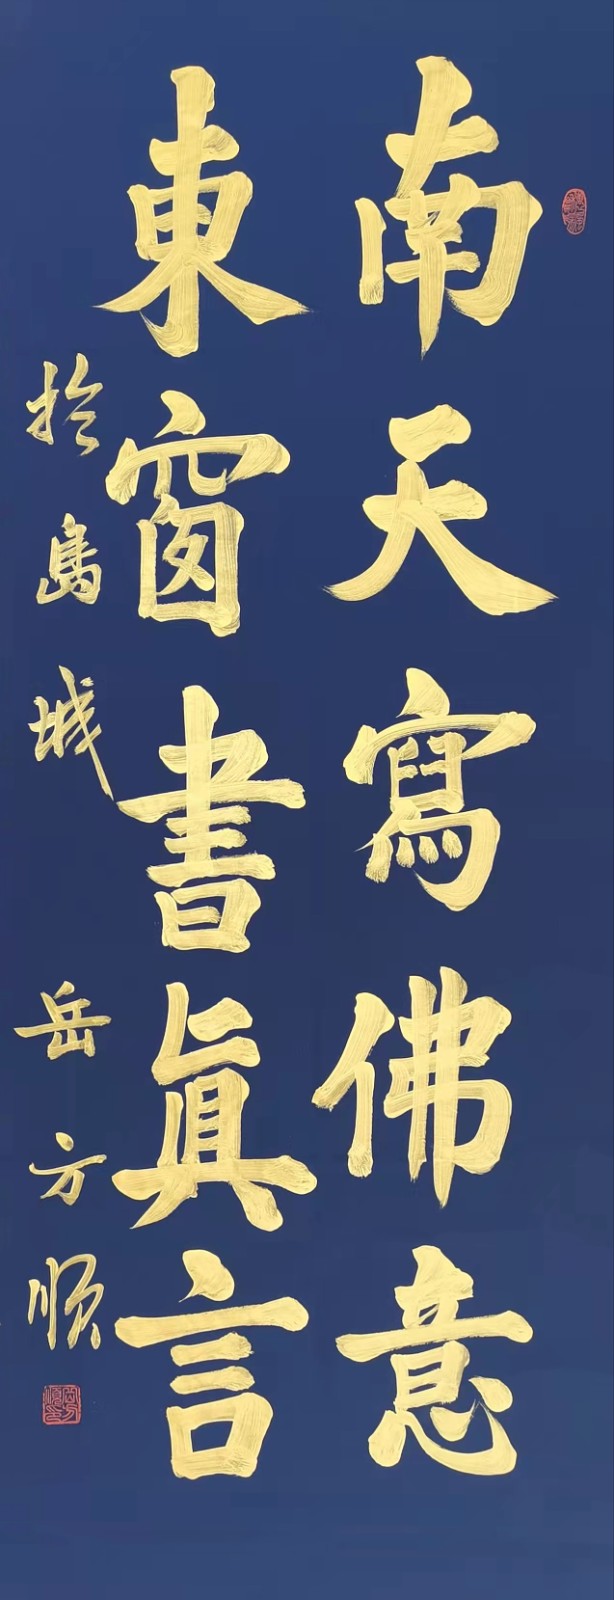 南天寫佛意
東窗書眞言
於島城 岳方順